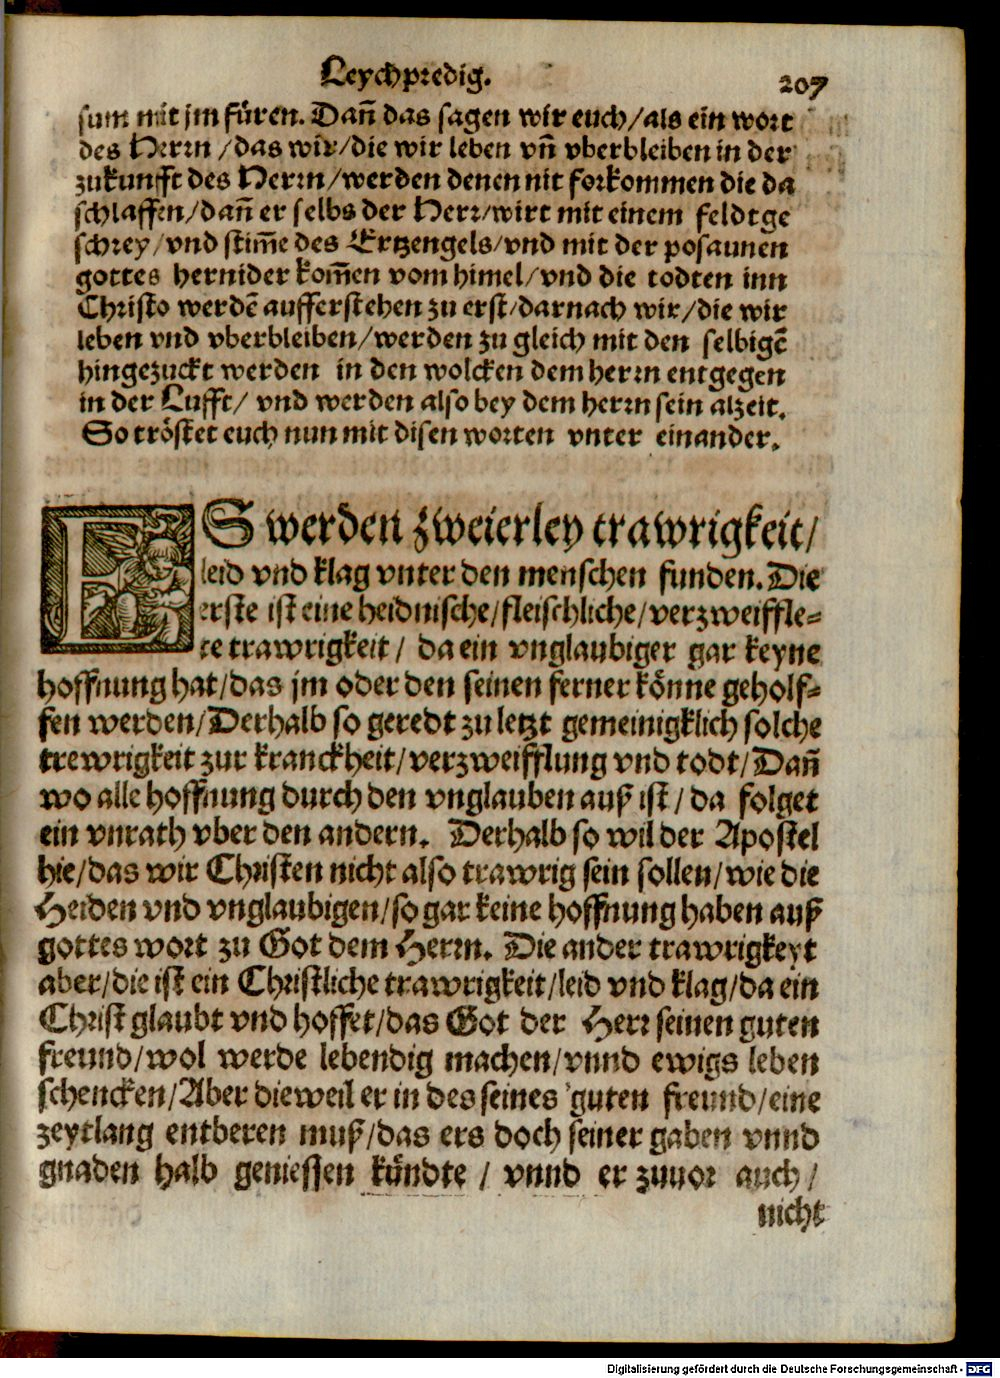 Leychpredig. 207
sum mit jm füren. Dañ das sagen wir euch/als ein wort
des Herrn /das wir/die wir leben vñ vberbleiben in der
zukunfft des Herrn/werden denen nit forkommen die da
schlaffen/dañ er selbs der Herr/wirt mit einem feldtge
schrey/vnd stim̃e des Ertzengels/vnd mit der posaunen
gottes hernider kom̃en vom himel/vnd die todten inn
Christo werdẽ aufferstehen zu erst/darnach wir/die wir
leben vnd vberbleiben/werden zu gleich mit den selbigẽ
hingezuckt werden in den wolcken dem herrn entgegen
in der Lufft/ vnd werden also bey dem herrn sein alzeit.
So tröstet euch nun mit disen worten vnter einander.
ES werden zweierley trawrigkeit/
leid vnd klag vnter den menschen funden. Die
erste ist eine heidnische/fleischliche/verzweiffle=
te trawrigkeit/ da ein vnglaubiger gar keyne
hoffnung hat/das jm oder den seinen ferner könne geholf=
fen werden/Derhalb so geredt zu letzt gemeinigklich solche
trewrigkeit zur kranckheit/verzweifflung vnd todt/Dañ
wo alle hoffnung durch den vnglauben auß ist/da folget
ein vnrath vber den andern. Derhalb so wil der Apostel
hie/das wir Christen nicht also trawrig sein sollen/wie die
Heiden vnd vnglaubigen/so gar keine hoffnung haben auß
gottes wort zu Got dem Herrn. Die ander trawrigkeyt
aber/die ist ein Christliche trawrigkeit/leid vnd klag/da ein
Christ glaubt vnd hoffet/das Got der Herr seinen guten
freund/wol werde lebendig machen/vnnd ewigs leben
schencken/Aber dieweil er in des seines guten freund/eine
zeytlang entberen muß/das ers doch seiner gaben vnnd
gnaden halb geniessen kündte / vnnd er zuuor auch/
nicht
Digitalisierung gefördert durch die Deutsche Forschungsgemeinschaft - DFG